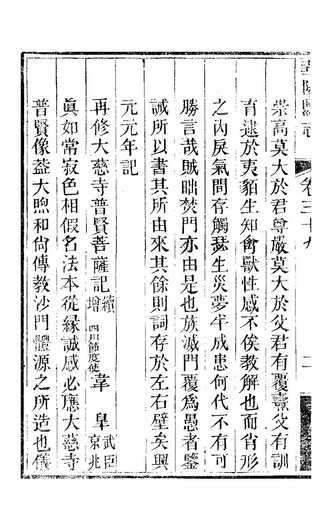 崇高莫大於君尊嚴莫大於父君有覆燾父有訓
育逮於夷貊生知禽獸性感不俟教解也而肖形
之內戾氣間存觸蠥生災夢半成患何代不有可
勝言哉賊𣅿焚門亦由是也族滅門覆爲愚者鑒
誡所以書其所由來其餘則詞存於左右壁矣興
元元年記
再修大慈寺普賢菩薩記續增四川節度使韋臯武臣京兆
眞如常寂色相假名法本從緣誠感必應大慈寺
普賢像葢大煦和尙傳教沙門體源之所造也儀
卷三十九
二